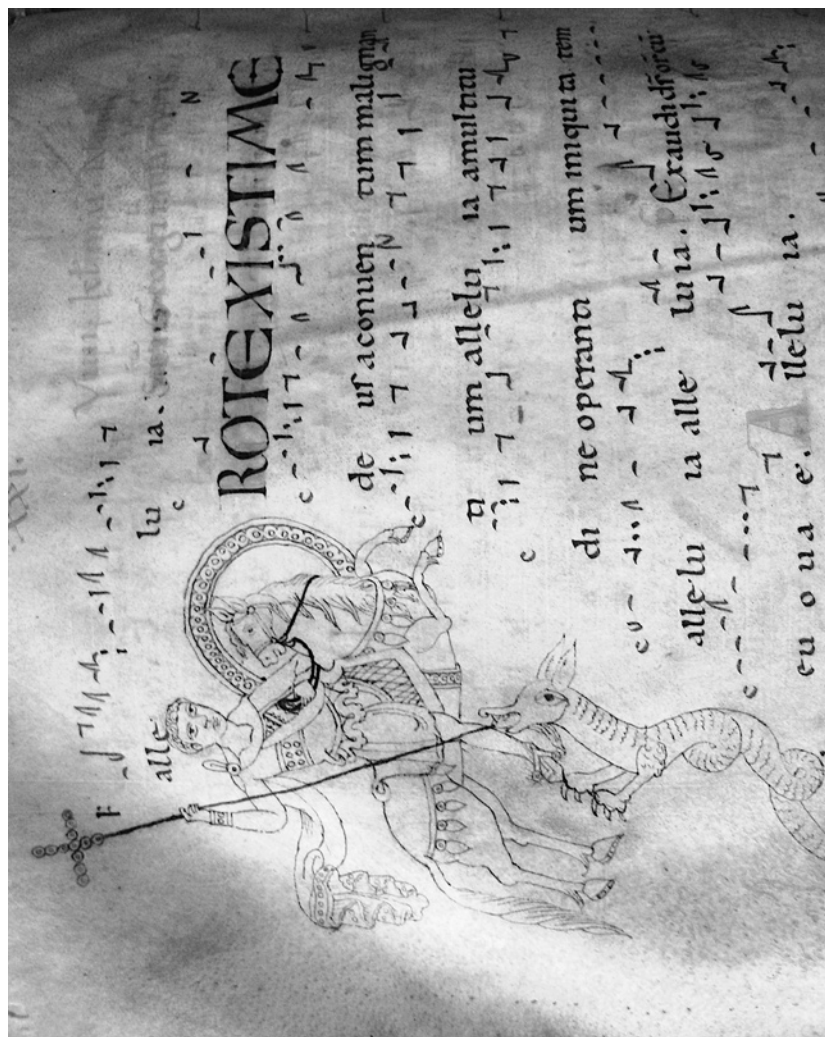 alle lu ia.
ROTEXISTIME
de uſ aconuen tum malignan
ti um allelu ia amultitu
di ne operanti um iniquita tem
allelu ia alle luia. Exaudi
eu o ua e. Allelu ia.